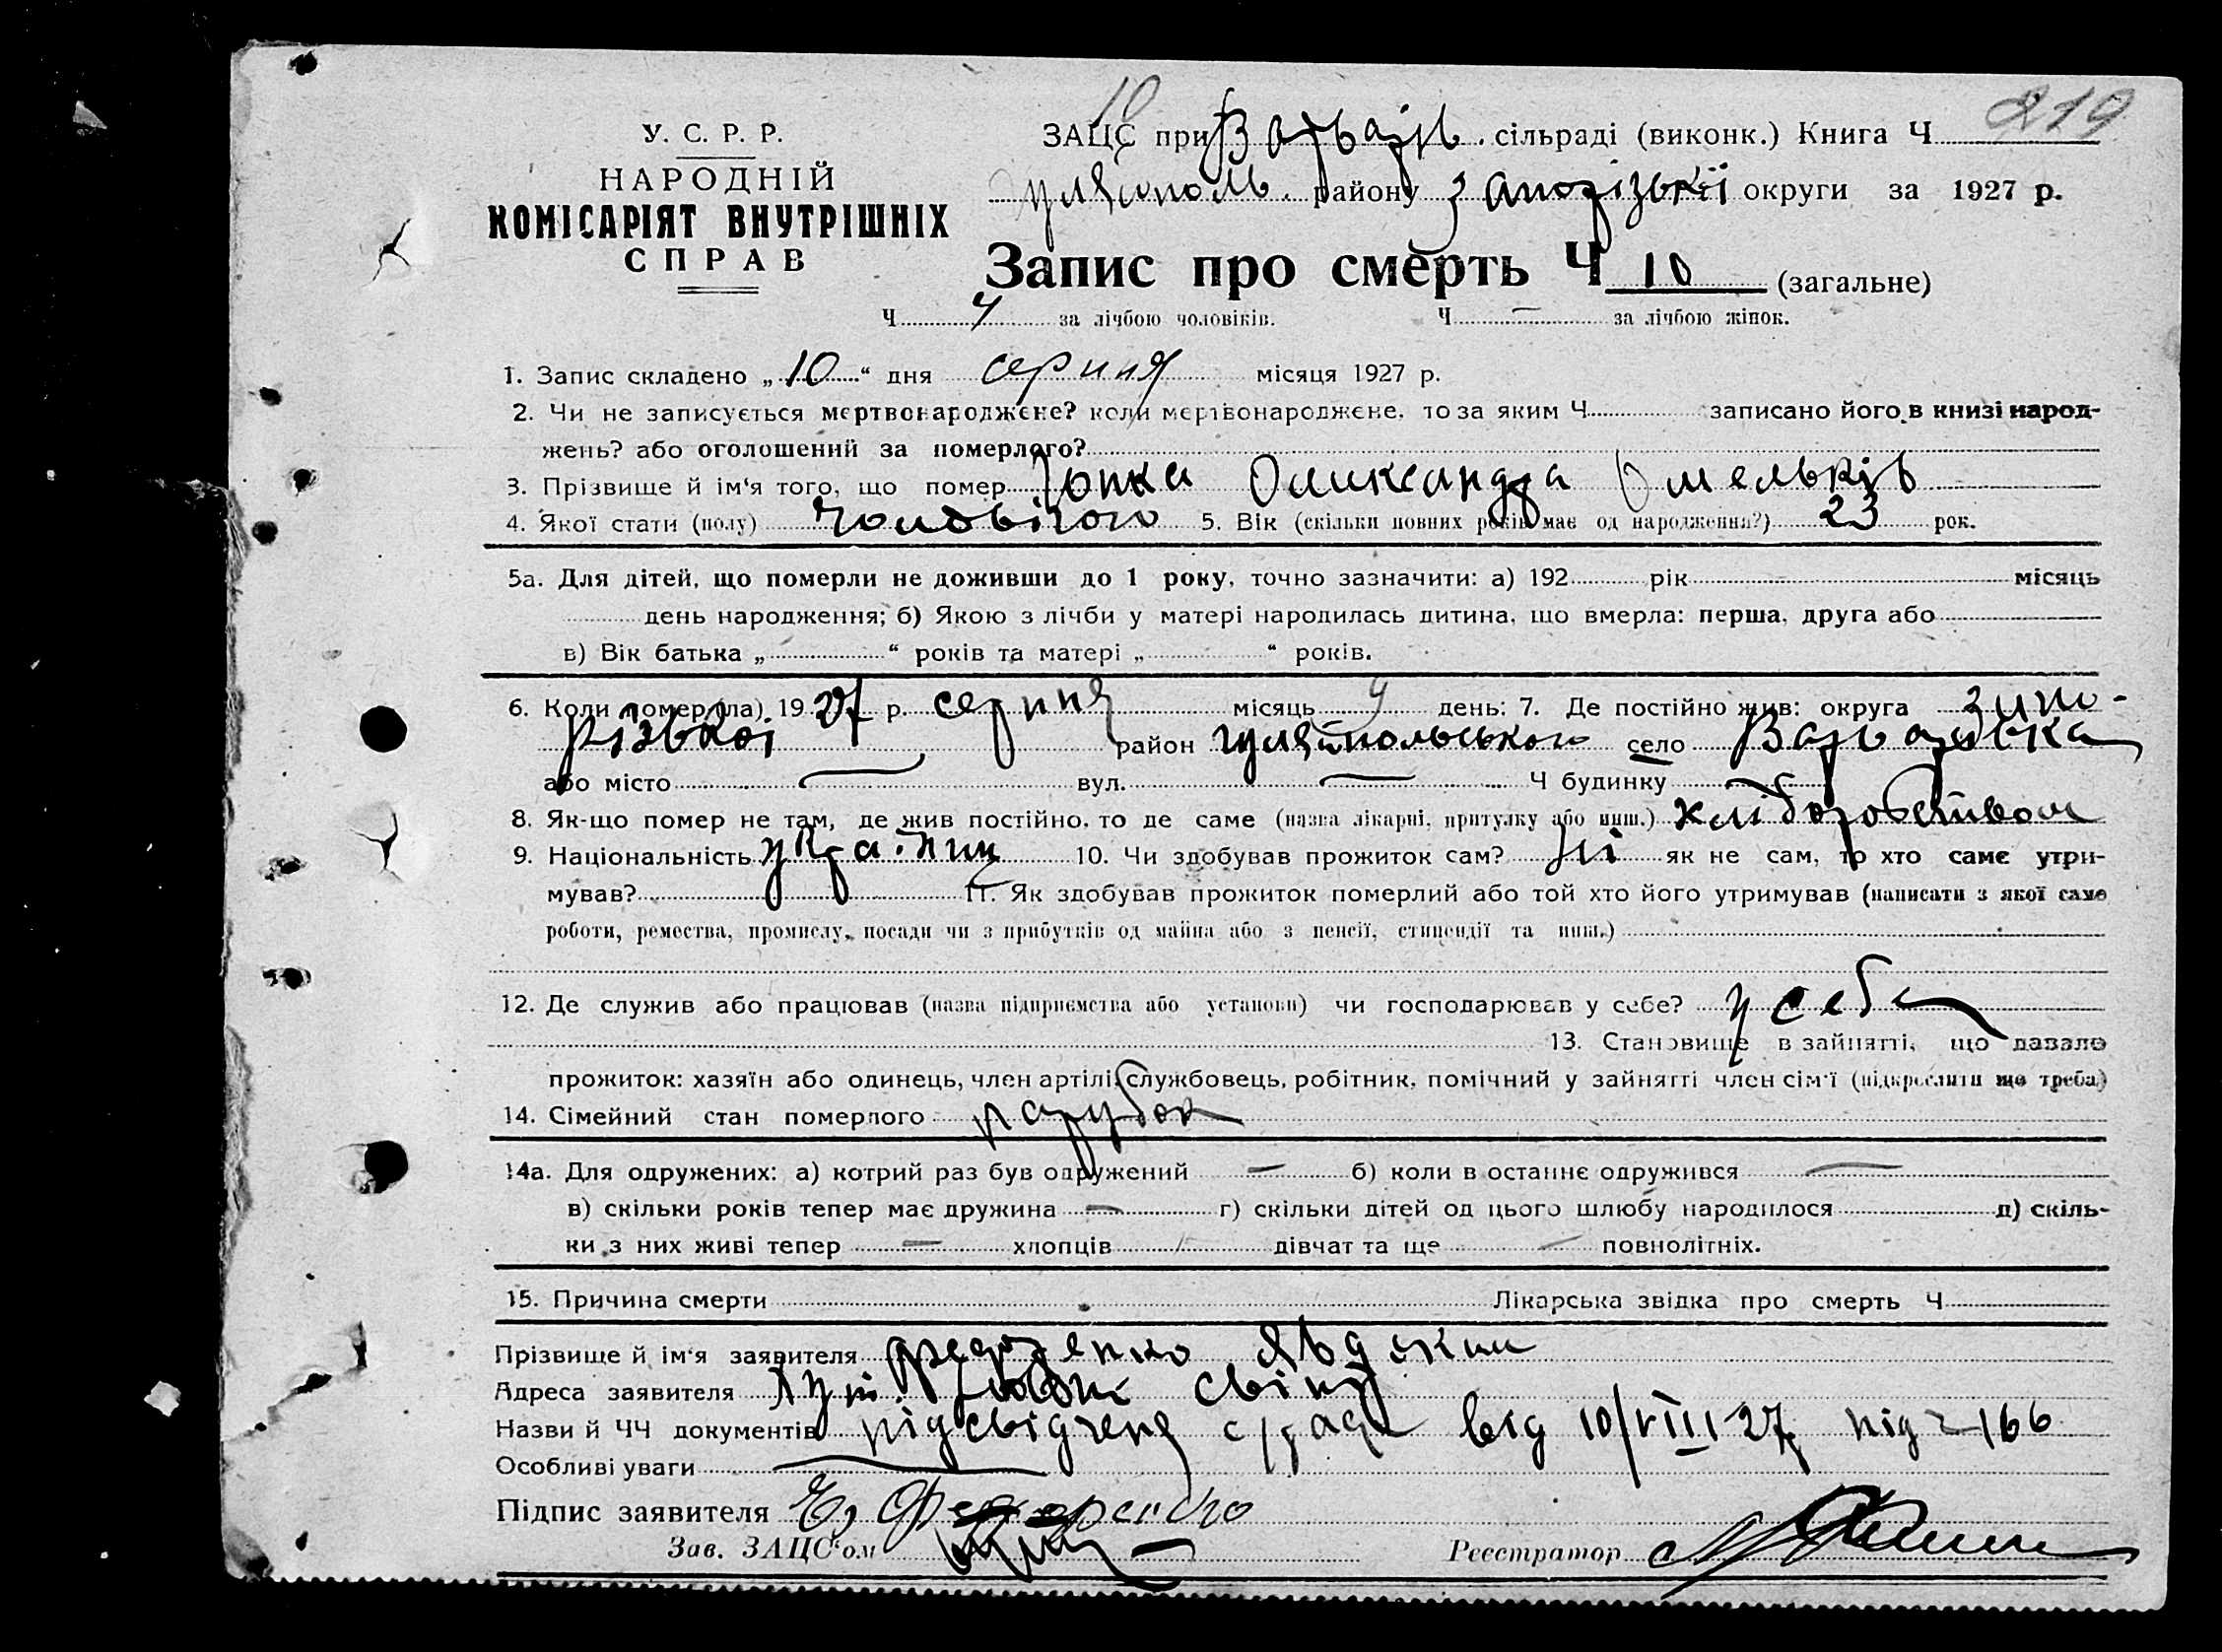 10
219
У. С. Р. Р.
НАРОДНІЙ
КОМІСАРІЯТ ВНУТРІШНІХ
СПРАВ
ЗАЦС при Варварів. сільраді (виконк.) Книга Ч
Гуляйполь. району Запорізької округи за 1927 р.
Запис про смерть Ч 10 (загальне)
Ч 4 за лічбою чоловіків. Ч — за лічбою жінок.
1. Запис складено „10“ дня серпня місяця 1927 р.
2. Чи не записується мертвонароджене? коли мертвонароджене, то за яким Ч записано його в книзі народ-
жень? або оголошений за померлого?
3. Прізвище й ім'я того, що помер Олександра Омельків
4. Якої стати (полу) чоловічого 5. Вік (скільки повних років має од народження?) 23 рок.
5а. Для дітей, що померли не доживши до 1 року, точно зазначити: а) 192 рік місяць
день народження; б) Якою з лічби у матері народилась дитина, що вмерла: перша, друга або
в) Вік батька „ “ років та матері „ “ років.
6. Коли помер(ла) 1927 р. серпня місяць 4 день: 7. Де постійно жив: округа Запо-
різької район Гуляйпольського село Варварівка
або місто — вул. — Ч будинку
8. Як-що помер не там, де жив постійно, то де саме (назва лікарні, притулку або инш.) хліборобством
9. Національність україн. 10. Чи здобував прожиток сам? як не сам, то хто саме утри-
мував? 11. Як здобував прожиток померлий або той хто його утримував (написати з якої саме
роботи, ремества, промислу, посади чи з прибутків од майна або з пенсії, стипендії та инш.)
12. Де служив або працював (назва підприємства або установи) чи господарював у себе? у себе
13. Становище в зайнятті, що давало
прожиток: хазяїн або одинець, член артілі, службовець, робітник, помічний у зайнятті член сім'ї (підкреслити що треба)
14. Сімейний стан померлого парубок
14а. Для одружених: а) котрий раз був одружений — б) коли в останнє одружився —
в) скільки років тепер має дружина — г) скільки дітей од цього шлюбу народилося д) скіль-
ки з них живі тепер — хлопців дівчат та ще — повнолітніх.
15. Причина смерти Лікарська звідка про смерть Ч
Прізвище й ім'я заявителя Федоренко Явдоким
Адреса заявителя
Назви й ЧЧ документів підсвідченя с/ради від 10/VIII 27 під 166
Особливі уваги
Підпис заявителя Е, Федоренко
Зав. ЗАЦС'ом Реєстратор